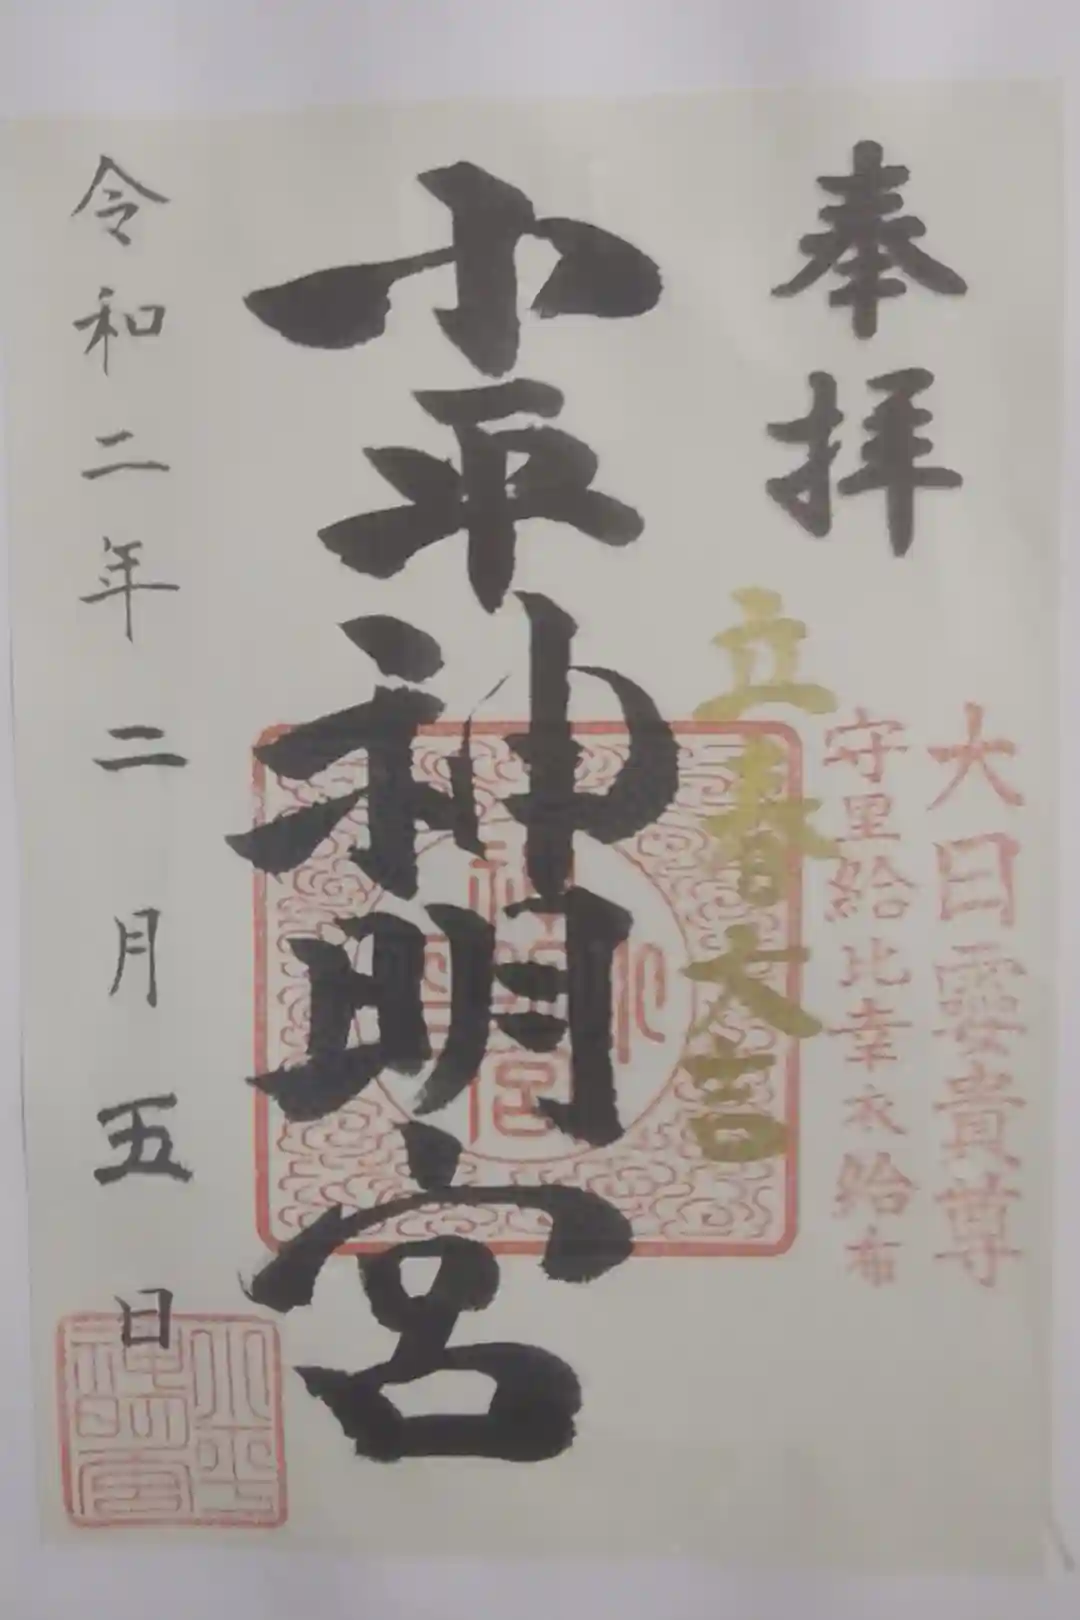 奉拝
大日孁貴尊
守里給比幸衣給布
立春大吉
小平神明宮
令和二年二月五日
小平神明宮